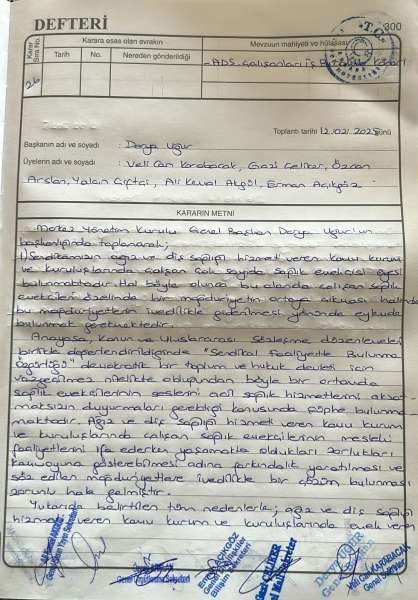 DEFTERİ
300
Karar Sıra No.
Karara esas olan evrakın
Tarih
No.
Nereden gönderildiği
Mevzuun mahiyeti ve hülasası
26
- ADS. Çalışanları İş
Kararı
T.C.
Toplantı tarihi 12.02.2025 günü
Başkanın adı ve soyadı : Derya Uğur
Üyelerin adı ve soyadı : Veli Can Karabacak, Gazi Çelikır, Özcan
Arslan, Yalçın Çiftçi, Ali Kemal Akgül, Erman Açıkgöz
KARARIN METNİ
Merkez Yönetim Kurulu Genel Başkan Derya Uğur'un
başkanlığında toplanarak;
1) Sendikamızın ağız ve diş sağlığı hizmeti veren kamu kurum
ve kuruluşlarında çalışan çok sayıda sağlık emekçisi üyesi
bulunmaktadır. Hal böyle olunca bu alanda çalışan sağlık
emekçileri özelinde bir mağduriyetin ortaya çıkması halinde
bu mağduriyetlerin ivedilikle giderilmesi yönünde eylemde
bulunmak gerekmektedir.
Anayasa, Kanun ve Uluslararası Sözleşme düzenlemeleri
birlikte değerlendirildiğinde "Sendikal Faaliyette Bulunma
Özgürlüğü" demokratik bir toplum ve hukuk devleti için
vazgeçilmez nitelikte olduğundan böyle bir ortamda
sağlık emekçilerinin seslerini acil sağlık hizmetlerini aksat-
maksızın duyurmaları gerektiği konusunda şüphe bulunma-
maktadır. Ağız ve diş sağlığı hizmeti veren kamu kurum
ve kuruluşlarında çalışan sağlık emekçilerinin mesleki
faaliyetlerini ifa ederken yaşamakta oldukları zorlukları
kamuoyuna gösterebilmesi adına farkındalık yaratılması ve
söz edilen mağduriyetlere ivedilikle bir çözüm bulunması
zorunlu hale gelmiştir.
Yukarıda belirtilen tüm nedenlerle; ağız ve diş sağlığı
hizmeti veren kamu kurum ve kuruluşlarında emek veren
Genel Basın Yayın Sekreteri
Erman AÇIKGÖZ
Bilişim Sekreteri
Genel Mali Sekreter
Derya UĞUR
Genel Başkan
Veli Can KARABACAK
Genel Sekreter